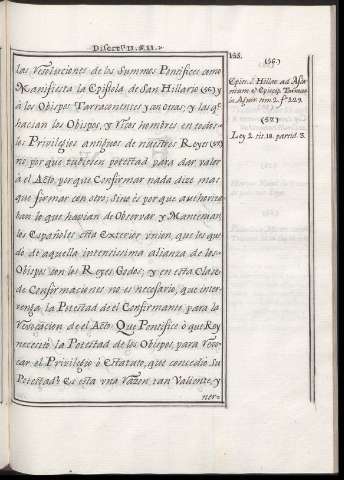 Disert.ⁿ 13. §. 11.
155.
las Resoluciones de los Summos Pontifices como
Manifiesta la Epistola de San Hillario (56) y
à los Obispos Tarraconenses y an otras; y las q.
hacian los Obispos, y Ricos hombres en todos
los Privilegios antiguos de nuestros Reyes (57)
no por que tubiesen potestad para dar valor
à el Acto, porque Confirmar nada dize mas
que firmar con otro; Sino es por que authoriza
ban lo que havian de Observar y Mantenian
los Españoles esta Exterior union, que les que
dò de aquella intensissima alianza de los
Obispos con los Reyes Godos; y en esta Clase
de Confirmaciones no es necesario, que inter
venga la Potestad de el Confirmante para la
Revocacion de el Acto. Que Pontifice ò que Rey
necesitò la Potestad de los Obispos, para Revo
car el Privilegio ò Estatuto, que concedio su
Potestad? Es esta una Razon tan Valiente, y
ner-
(56)
Epist. S. Hillar. ad
(57)
Ley 2. tit. 18. partid. 3.